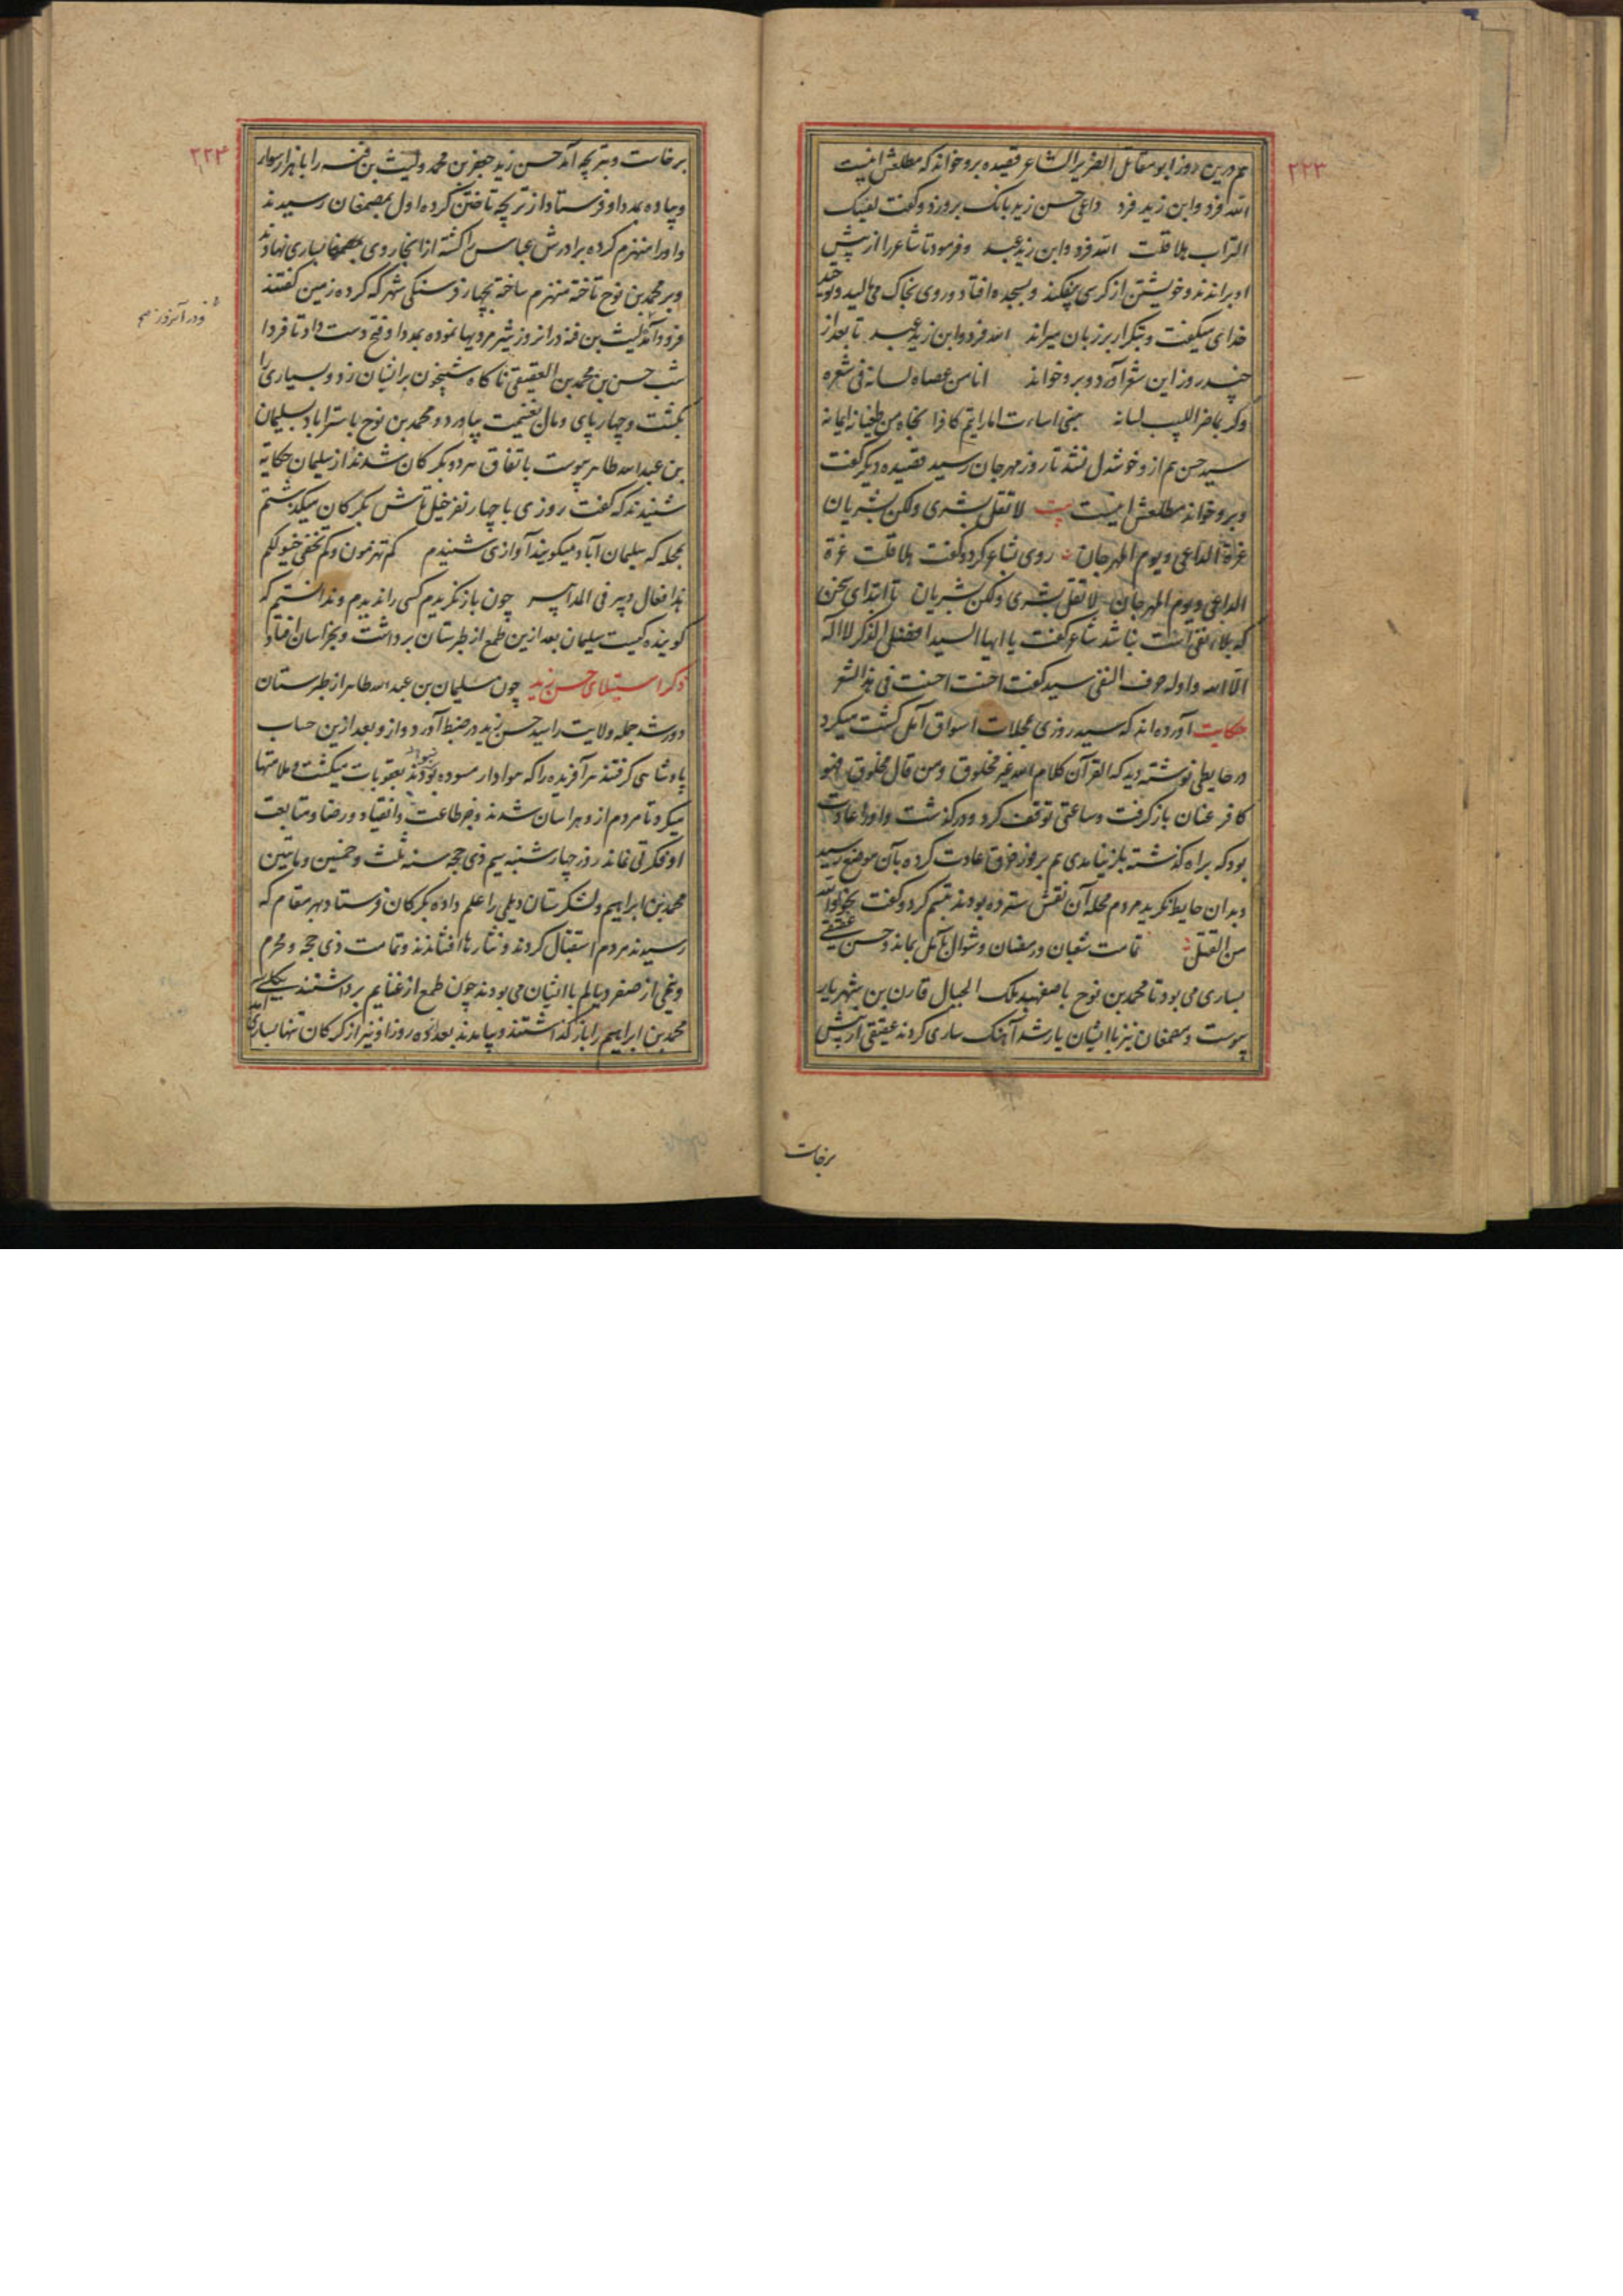 ۲۲۳
هم درین روز ابو مقاتل الضریر الشاعر قصیده برو خواند که مطلعش اینست
الله فرد وابن زید فرد داعی حسن زید بانک بروزد و کفت بفیک
التراب هلا قلت الله فرد وابن زید عبد و فرمود تا شاعر را از پیش
او براندند و خویشتن از کرسی بیفکند و بسجده افتاد و روی بخاک می مالید و توحید
خدای میکفت و بتکرار بر زبان میراند الله فرد وابن زید عبد تا بعد از
چند روز این شعر آورد و برو خواند انا من عصاه لسانه فی شعره
ولربما ضر اللبیب لسانه هبنی اساءت اما رایتم کافرا نجاه من طغیانه ایمانه
سید حسن هم ازو خوشدل نشد تا روز مهرجان رسید قصیده دیکر کفت
و برو خواند مطلعش اینست بیت لا تقل بشری ولکن بشریان
غرة الداعی و یوم المهرجان روی بشاعر کرد و کفت هلا قلت غرة
الداعی و یوم المهرجان لا تقل بشری ولکن بشریان تا ابتدای سخن
که بلاء نفی است نباشد شاعر کفت یا ایها السید افضل الذکر لا اله
الا الله و اوله حرف النفی سید کفت احسنت احسنت فی هذا الشعر
حکایت آورده اند که سید روزی بمحلات اسواق آمل کشت میکرد
در حایطی نوشته دید که القرآن کلام الله غیر مخلوق و من قال مخلوق فهو
کافر عنان باز کرفت و ساعتی توقف کرد و در کذشت و او را عادت
بود که براه کذشته باز نیامدی هم بروز خرق عادت کرده بآن موضع رسید
و بدان حایط نکرید مردم محله آن نقش سترده بودند تبسم کرد و کفت نجوا والله
من القتل تمامت شعبان و رمضان و شوال بآمل بماند و حسن عقیقی
بساری می بود تا محمد بن نوح باصفهبد ملک الجبال قارن بن شهریار
پیوست و مصمغان نیز با ایشان یار شد آهنک ساری کردند عقیقی از پیش
برخاست
۲۲۴
برخاست و بتریجه آمد حسن زید جعفر بن محمد و لیث بن فنه را با هزار سوار
و پیاده بمدد او فرستاد از تریجه تاختن کرده اول بمصمغان رسیدند
و او را منهزم کرده برادرش عباس را کشته از انجا روی بساری نهادند
و بر محمد بن نوح تاخته منهزم ساخته بچهار فرسنکی شهر که کرده زمین کفتند
فرود آمد لیث بن فنه در انروز شیر مردیها نموده بمدد او فتح دست داد تا فردا
شب حسن بن محمد بن العقیقی ناکاه شبیخون بر ایشان زد و بسیاری را
بکشت و چهار پای و مال بغنیمت بیاورد و محمد بن نوح باستراباد بسلیمان
بن عبد الله طاهر پیوست باتفاق هر دو بکرکان شدند از سلیمان حکایة
شنیدند که کفت روزی با چهار نفر خیل تاش بکرکان میکذشتم
بمحله که سلیمان آباد میکویند آوازی شنیدم کم تهزمون و کم تخفی خیولکم
هذا فعال چون باز نکریدم کسی را ندیدم و ندانستیم که
کوینده کیست سلیمان بعد ازین طمع از طبرستان برداشت و بخراسان افتاد
ذکر استیلای حسن زید چون سلیمان بن عبد الله طاهر از طبرستان
دور شد جمله ولایت را سید حسن زید در ضبط آورد و از و بعد ازین حساب
پادشاهی کرفتند هر آفریده را که هوادار مسوده بودند بعقوبات میکشت و ملامتها
میکرد تا مردم ازو هراسان شدند و جز طاعت و انقیاد و رضا و متابعت
او فکرتی نماند روز چهارشنبه سیم ذی حجه سنه ثلث و خمسین و مایتین
محمد بن ابراهیم و لشکرستان دیلمی را علم داده بکرکان فرستاد بهر مقام که
رسیدند مردم استقبال کردند و نثارها افشاندند و تمامت ذی حجه و محرم
و نیمی از صفر دیالم با ایشان می بودند چون طمع از غنایم برداشتند
محمد بن ابراهیم را باز کذاشتند و بیامدند بعد ده روز او نیز از کرکان تنها بساری آمد
و در آنروز صح